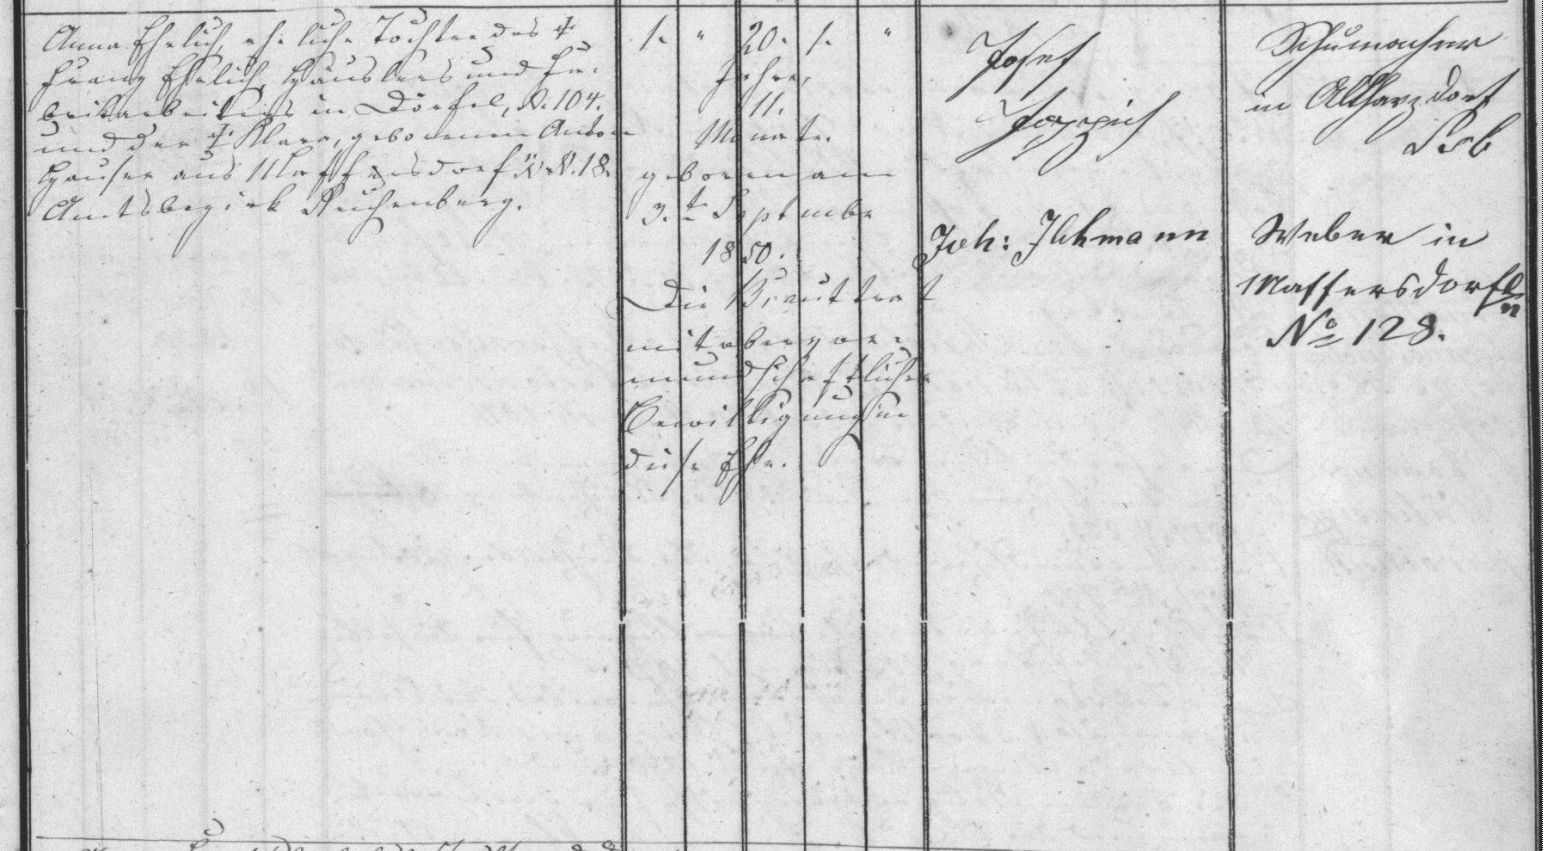 Anna Ehrlich, eheliche Tochter des †
Franz Ehrlich, Häuslers und Fa-
brikarbeiters in Dörfel, N. 104.
und der † Klara, gebornenen Anton
Hauser aus Maffersdorf N. 18.
Amtsbezirk Reichenberg.
1. " 20. 1. "
Jahre,
11.
Monate.
geboren am
3.t Septembr
1850.
Die Braut trat
mit obervor-
mundschaftlicher
Bewilligung in
diese Ehe.
Josef
Joppich
Joh: Ilchmann
Schumacher
in Altharzdorf
Weber in
Maffersdorf
No 128.